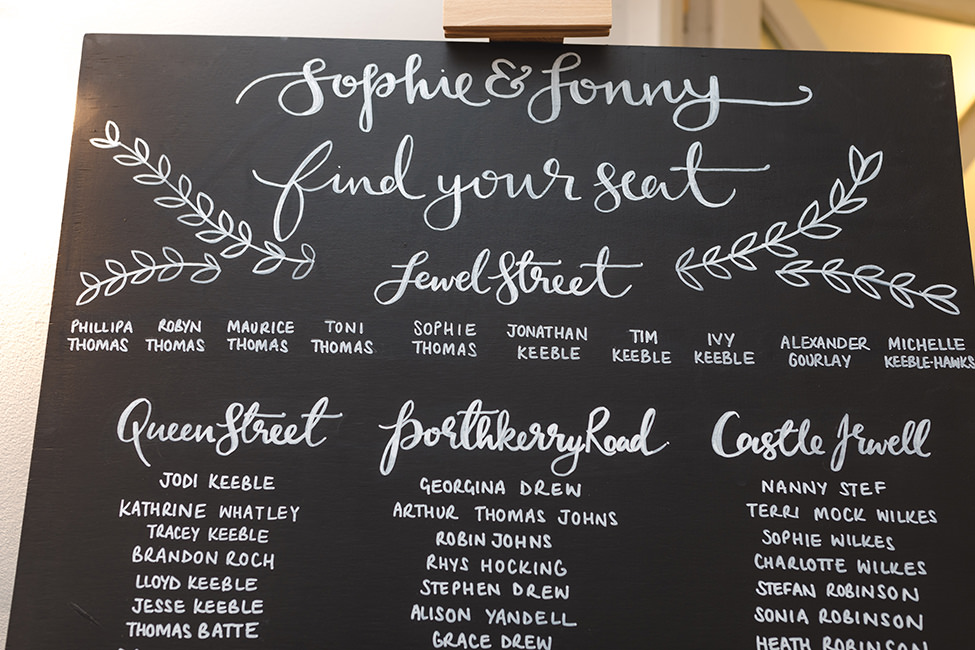 Sophie & Jonny
find your seat
Jewel Street
PHILLIPA THOMAS
ROBYN THOMAS
MAURICE THOMAS
TONI THOMAS
SOPHIE THOMAS
JONATHAN KEEBLE
TIM KEEBLE
IVY KEEBLE
ALEXANDER GOURLAY
MICHELLE KEEBLE-HAWKS
Queen Street
JODI KEEBLE
KATHRINE WHATLEY
TRACEY KEEBLE
BRANDON ROCH
LLOYD KEEBLE
JESSE KEEBLE
THOMAS BATTE
Porthkerry Road
GEORGINA DREW
ARTHUR THOMAS JOHNS
ROBIN JOHNS
RHYS HOCKING
STEPHEN DREW
ALISON YANDELL
GRACE DREW
Castle Jewell
NANNY STEF
TERRI MOCK WILKES
SOPHIE WILKES
CHARLOTTE WILKES
STEFAN ROBINSON
SONIA ROBINSON
HEATH ROBINSON